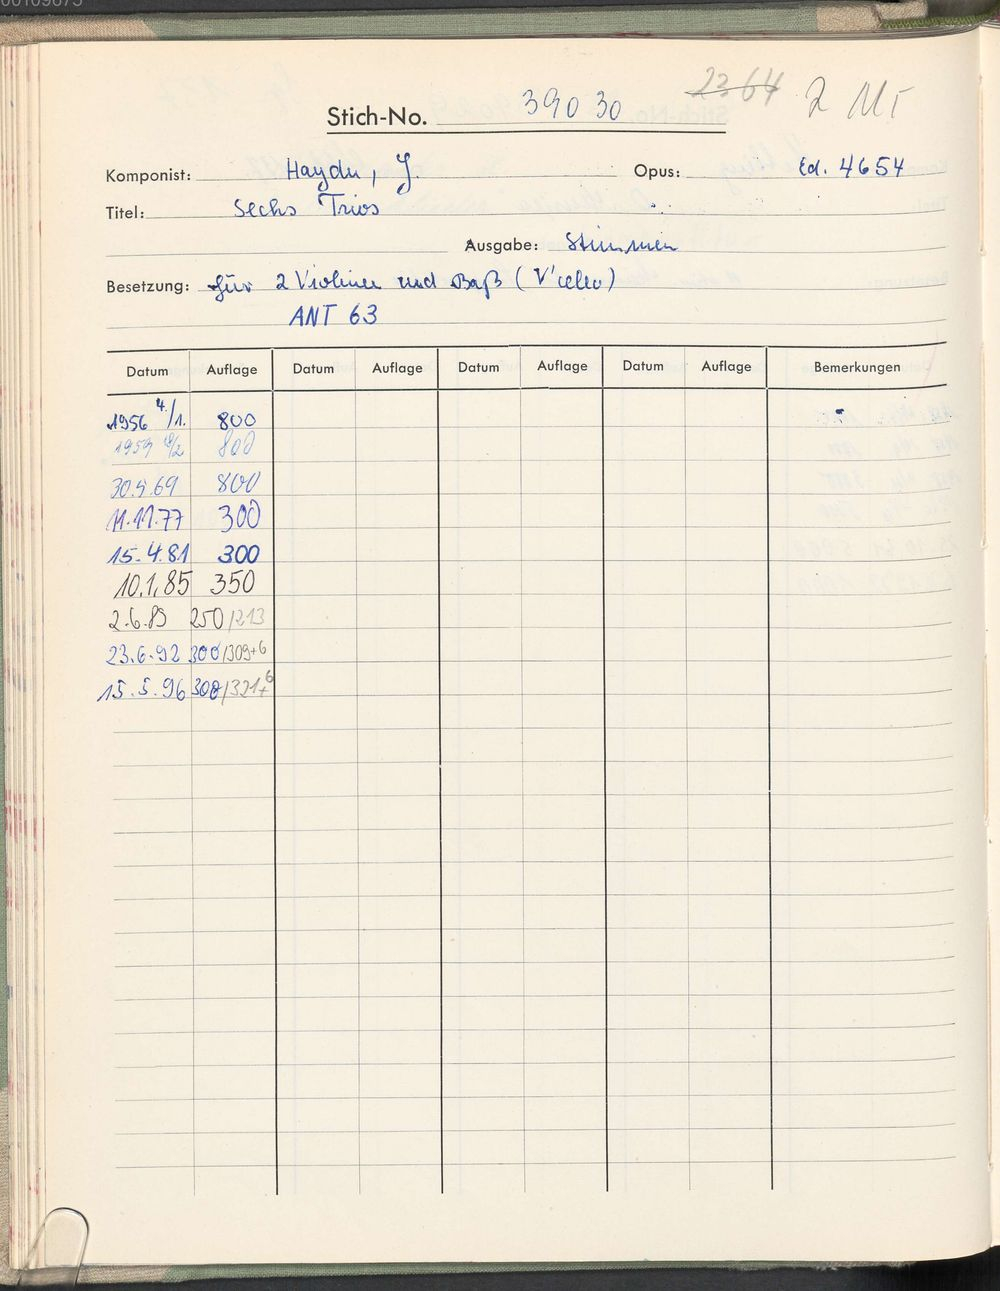 00109875
2364 2 Mt
Stich-No. 390 30
Komponist: Haydn, J. Opus: Ed. 4654
Titel: Sechs Trios
Ausgabe: Stimmen
Besetzung: für 2 Violinen und Baß (V'cello)
ANT 63
Datum Auflage Datum Auflage Datum Auflage Datum Auflage Bemerkungen
1956 4./1. 800
1959 800
30.9.69 800
11.11.77 300
15.4.81 300
10.1.85 350
2.6.89 250/213
23.6.92 300/309+6
15.5.96 300/321+6